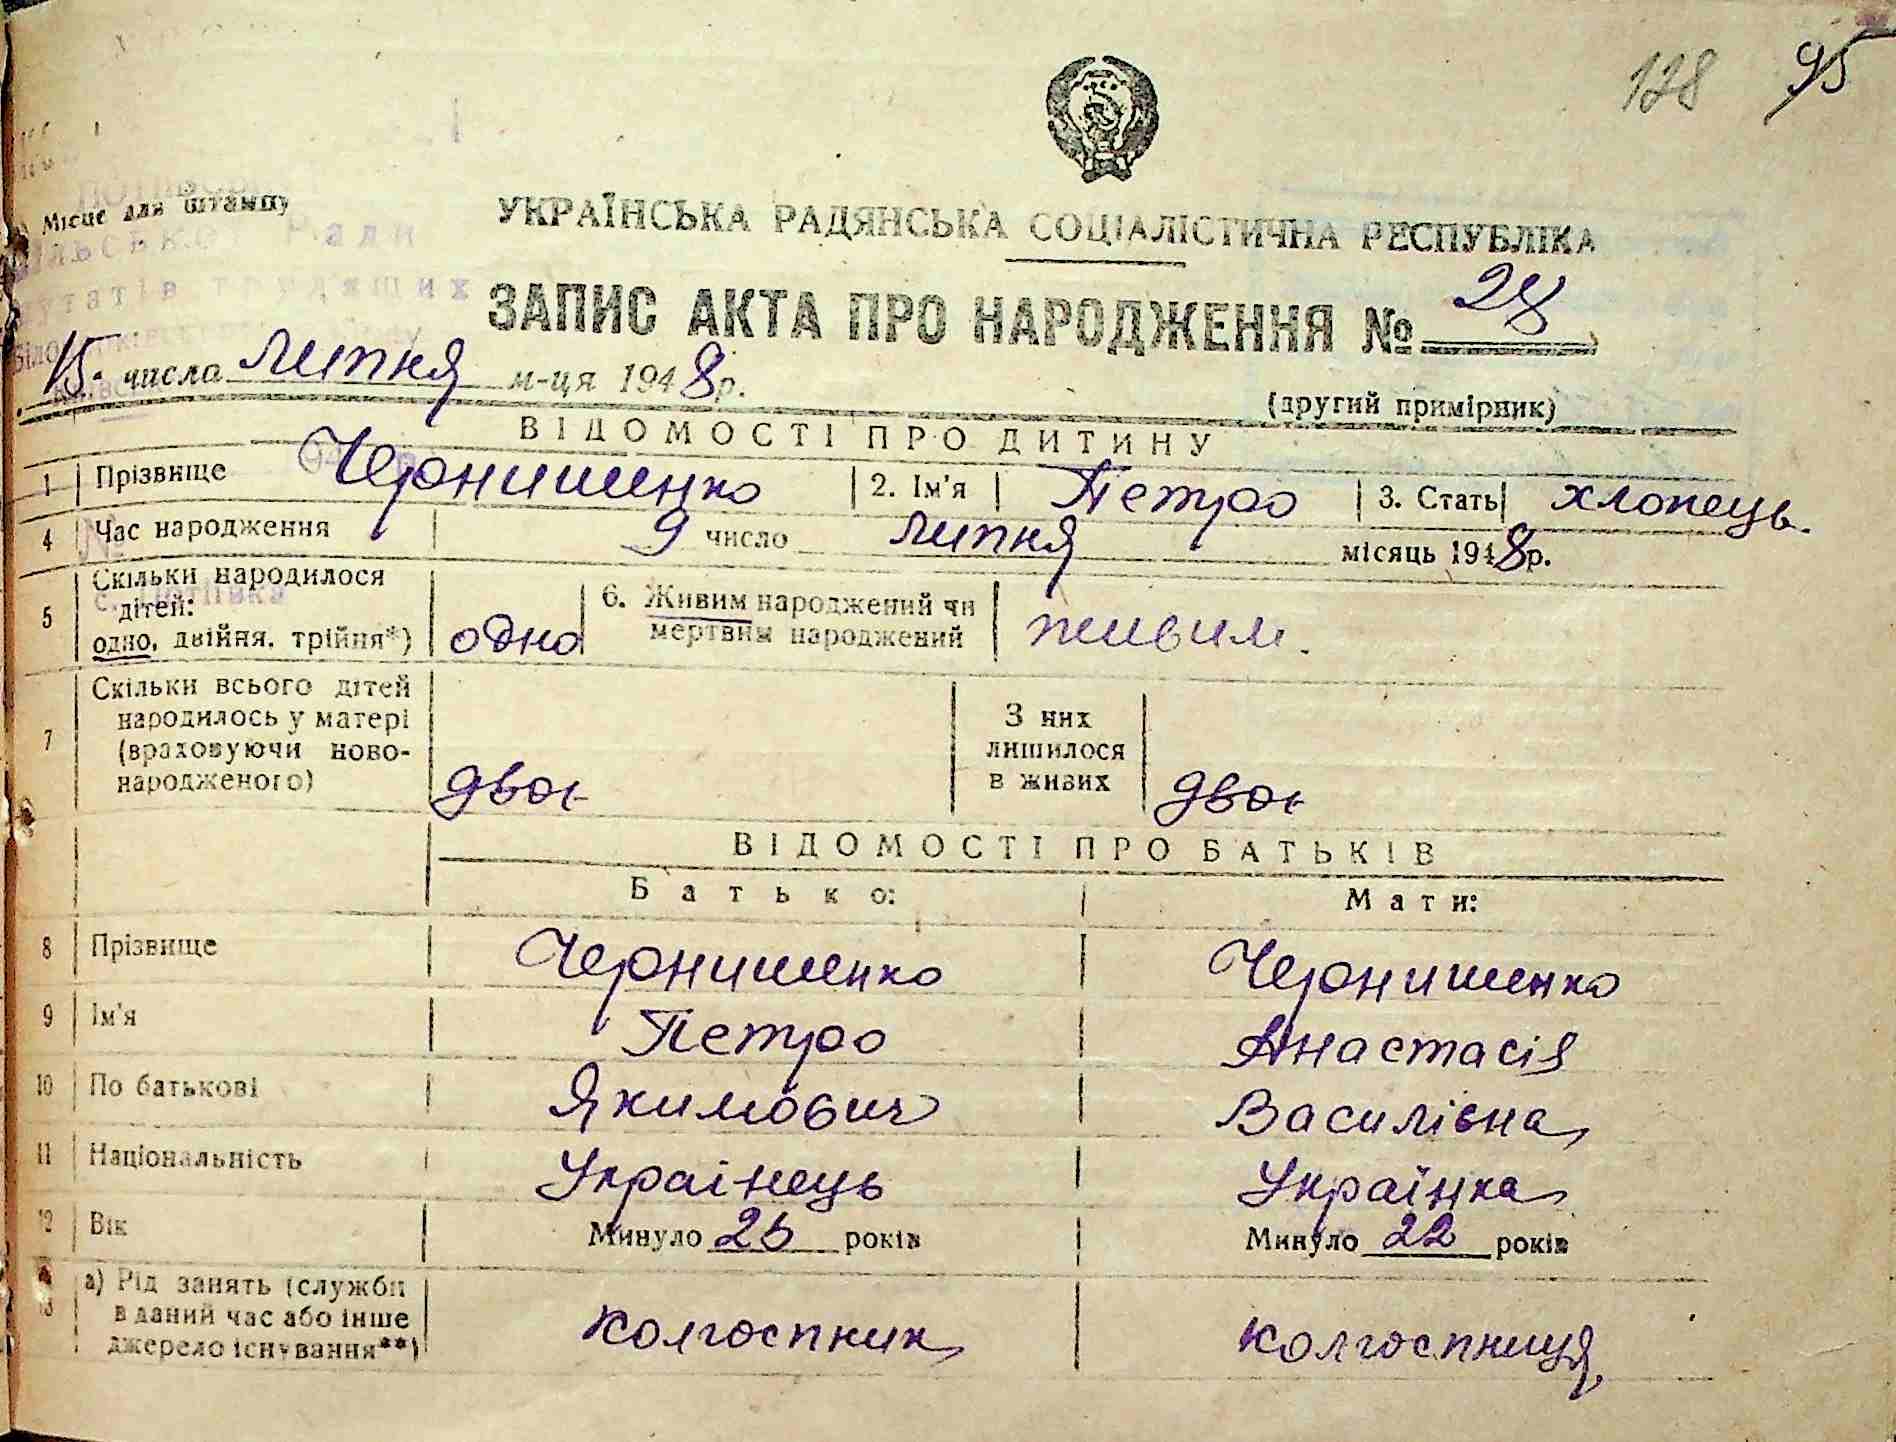 128 95
Місце для штампу
УКРАЇНСЬКА РАДЯНСЬКА СОЦІАЛІСТИЧНА РЕСПУБЛІКА
Ради
трудящих
ЗАПИС АКТА ПРО НАРОДЖЕННЯ № 28
15. числа липня м-ця 1948р.
(другий примірник)
ВІДОМОСТІ ПРО ДИТИНУ
1 Прізвище Чернишенко 2. Ім'я Петро 3. Стать хлопець.
4 Час народження 9 число липня місяць 1948р.
5 Скільки народилося дітей: одно, двійня, трійня*) одно 6. Живим народжений чи мертвим народжений живим.
7 Скільки всього дітей народилось у матері (враховуючи ново-народженого) двоє З них лишилося в живих двоє
ВІДОМОСТІ ПРО БАТЬКІВ
Батько: Мати:
8 Прізвище Чернишенко Чернишенко
9 Ім'я Петро Анастасія
10 По батькові Якимович Василівна
11 Національність Украінець Українка
12 Вік Минуло 25 років Минуло 22 років
13 а) Рід занять (служби в даний час або інше джерело існування**) колгоспник колгоспниця,